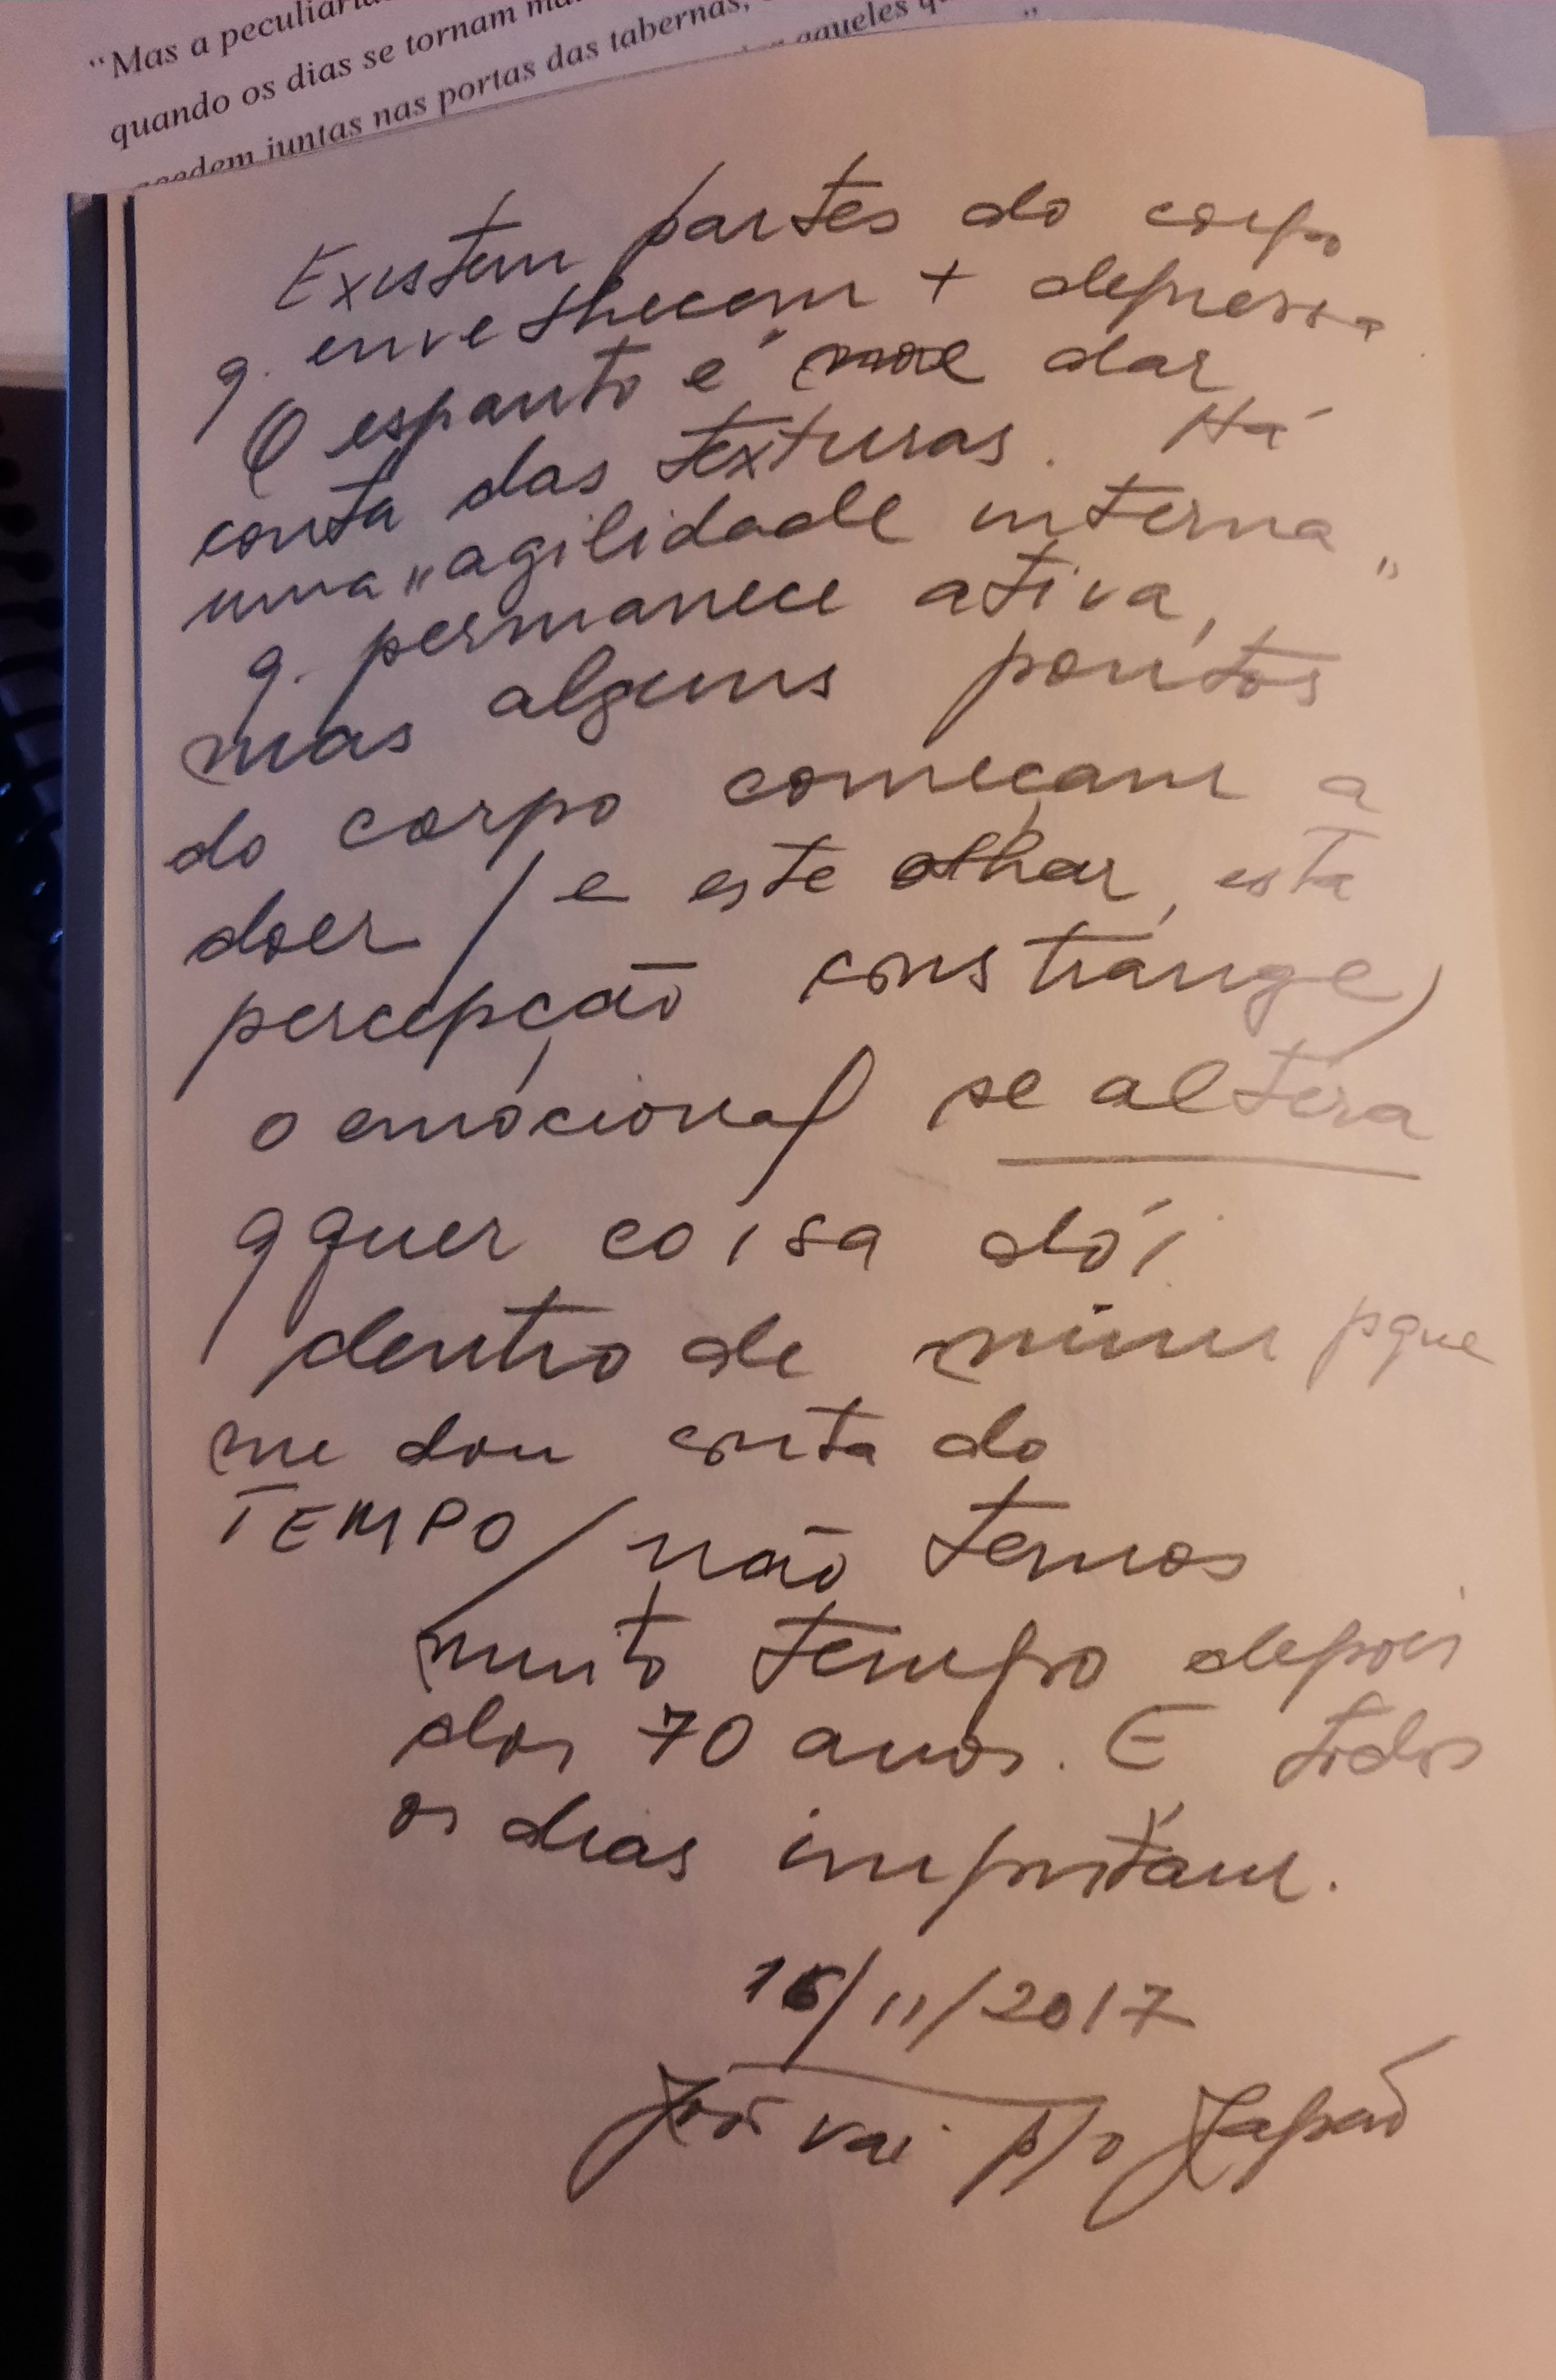 “Mas a peculiari
quando os dias se tornam
juntas nas portas das tabernas,
aqueles
Existem partes do corpo
q. envelhecem + depressa
O espanto é me dar
conta das texturas. Há
uma "agilidade interna"
q. permanece ativa,
mas alguns pontos
do corpo começam a
doer / e este olhar, esta
percepção constrange,
o emocional se altera
qquer coisa dói
dentro de mim pque
me dou conta do
TEMPO / não temos
muito tempo depois
dos 70 anos. E todos
os dias importam.
16/11/2017
vai p/o Japão